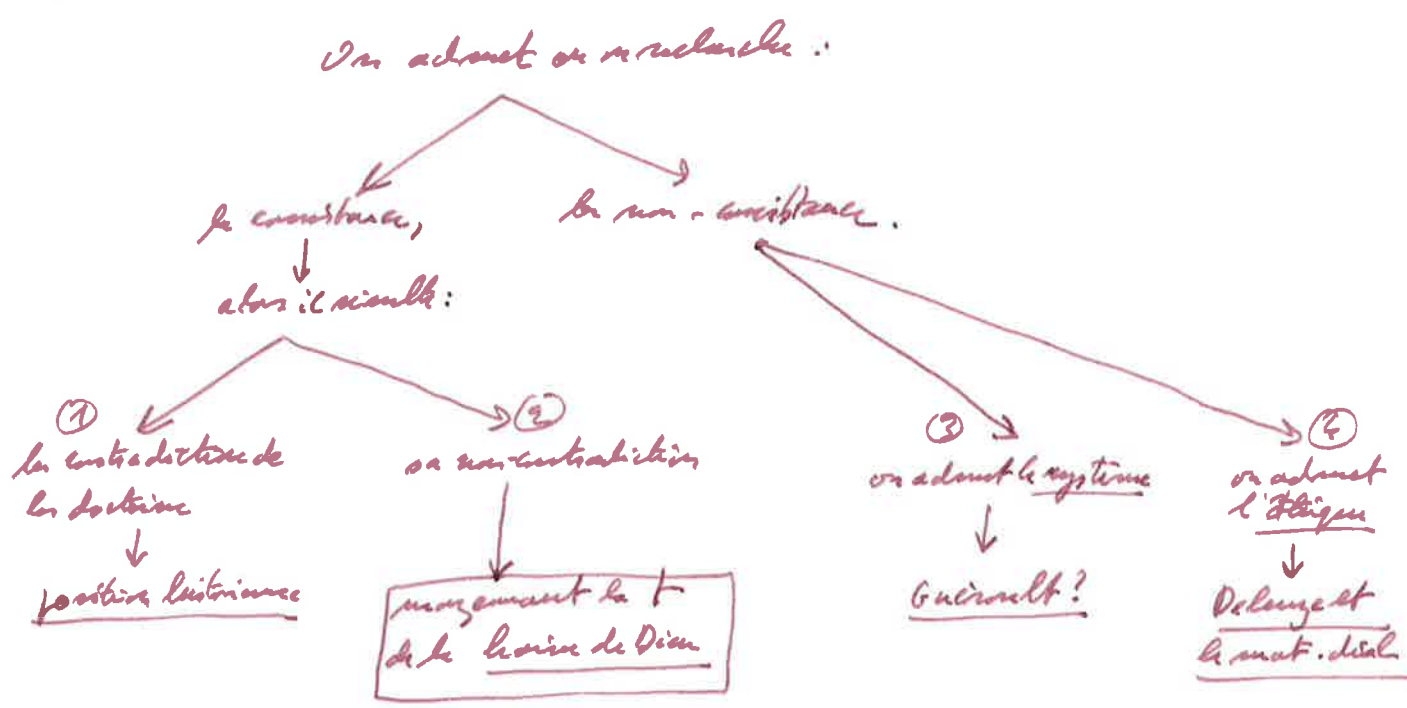 On admet ou on recherche :
la consistance,
la non-consistance.
alors il semble :
①
la contradiction de
la doctrine
position historienne
②
sa non-contradiction
moyennant la
de la haine de Dieu
③
on admet le système
Guéroult ?
④
on admet
l'Ethique
Deleuze et
le mat. dial